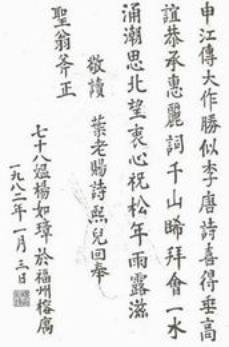 申江傳大作勝似李唐詩喜得垂高
誼恭承惠麗詞千山睎拜會一水
涌潮思北望衷心祝松年雨露滋
敬讀 葉老賜詩熙兒回奉
聖翁斧正
七十八媼楊如璋於福州榕廬
一九八二年一月三日